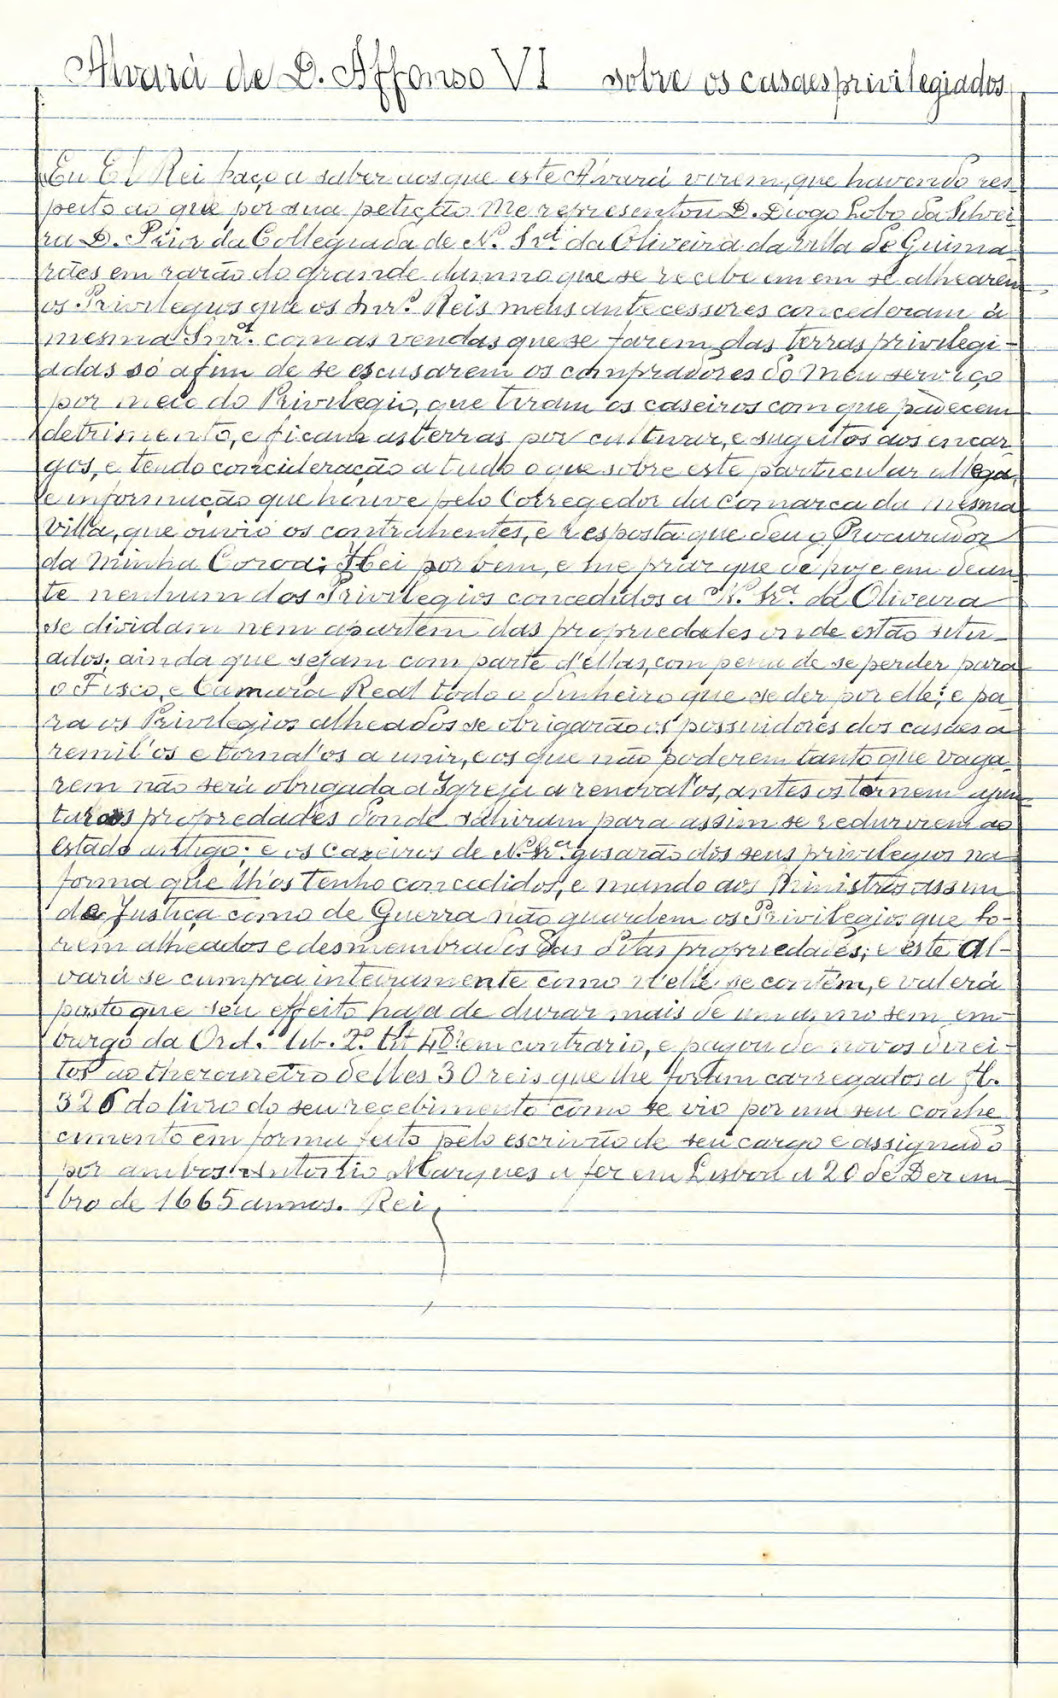 Alvará de D. Affonso VI sobre os casaes privilegiados
Eu El Rei faço a saber aos que este Alvará virem, que havendo res-
peito ao que por sua petição Me representou D. Diogo Lobo da Silvei-
ra D. Prior da Collegiada de N.ª Snr.ª da Oliveira da villa de Guima-
rães em razão do grande damno que se recebe em em se alhearem
os Privilegios que os Snr.ª Reis meus antecessores concederam á
mesma Snr.ª com as vendas que se fazem das terras privilegi-
adas só afim de se escusarem os compradores do Meu serviço
por meio do Privilegio, que tiram os caseiros com que padecem
detrimento, e ficam as terras por culturar, e sugeitos aos encar
gos, e tendo concideração a tudo o que sobre este particular allega,
e informação que houve pelo Corregedor da Comarca da mesma
Villa, que ouvio os contrahentes, e resposta que deu o Procurador
da Minha Coroa; Hei por bem, e me praz que de hoje em dean-
te nenhum dos Privilegios concedidos a N. Sr.ª da Oliveira
se dividam nem apartem das propriedades onde estão situ-
ados, ainda que sejam com parte d'ellas, com pena de se perder para
o Fisco, e Camara Real todo o dinheiro que se der por elle; e pa
ra os Privilegios alheados se obrigarão os possuidores dos casaes a
remil'os e tornal'os a unir, e os que não poderem tanto que vaga-
rem não será obrigada a Igreja a renoval'os, antes os tornem ajun-
tar ás propriedades donde sahiram para assim se reduzirem ao
estado antigo; e os Cazeiros de N. Sr.ª gosarão dos seus privilegios na
forma que lh'os tenho concedidos, e mando aos Ministros assim
de Justiça como de Guerra não guardem os Privilegios que fo-
rem alheados e desmembrados das ditas propriedades; e este Al-
vará se cumpra inteiramente como n'elle se contém, e valerá
posto que seu effeito haja de durar mais de um anno sem em-
bargo da Ord. Lib. 2.º tit. 40 em contrario, e pagou de novos direi-
tos ao thezoureiro delles 30 reis que lhe foram carregados a fl.
326 do livro do seu recebimento como se vio por um seu conhe
cimento em forma feito pelo escrivão de seu cargo e assignado
por ambos Antonio Marques a fez em Lisboa a 20 de Dezem-
bro de 1665 annos. Rei,